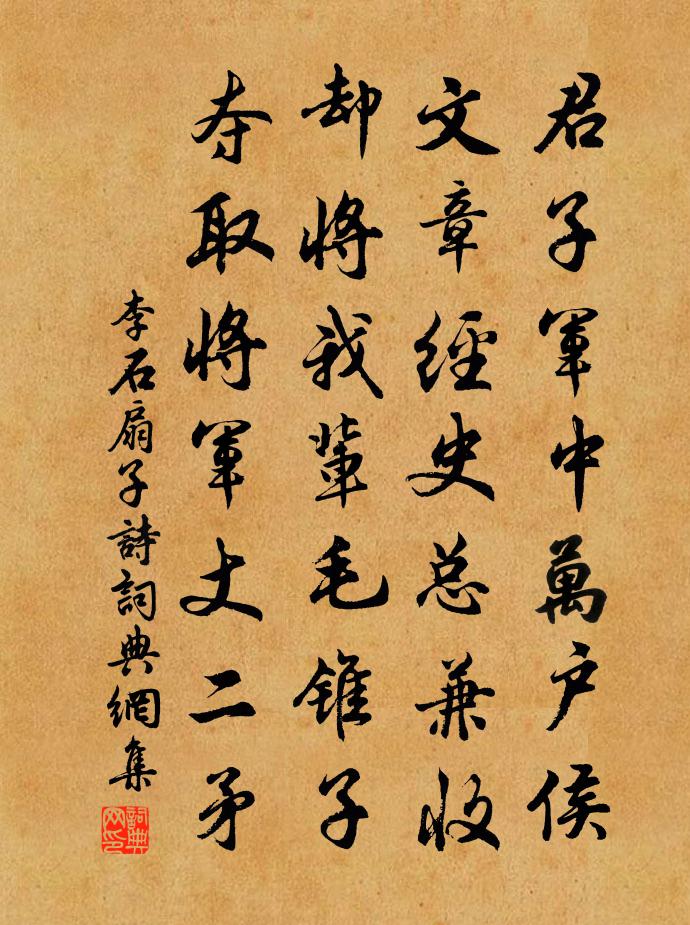 君子軍中萬户侯
文章經史总兼收
却將我輩毛锥子
夺取將軍丈二矛
李石扇子詩詞典網集
詞典网印